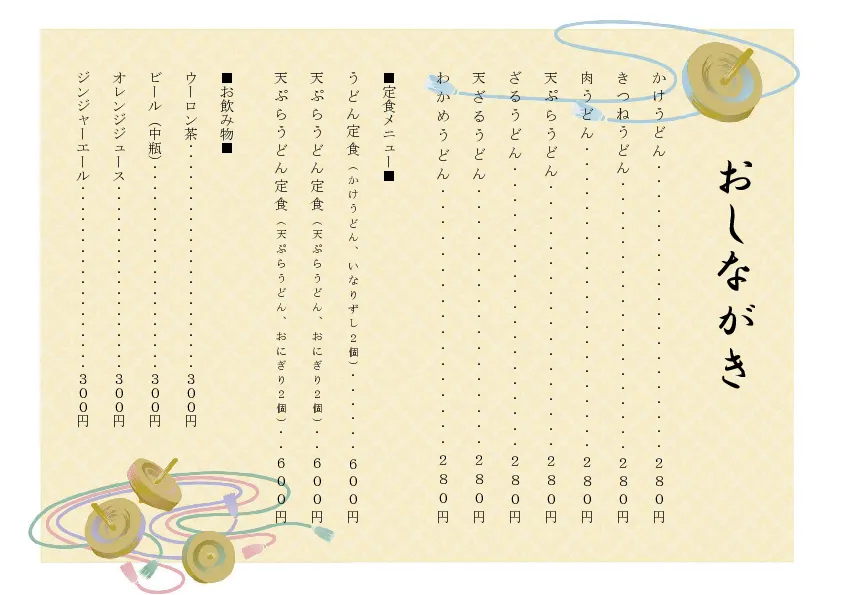 おしながき
かけうどん・・・・・・・・・・・・・・・・・・・・・・・２８０円
きつねうどん・・・・・・・・・・・・・・・・・・・・・・２８０円
肉うどん・・・・・・・・・・・・・・・・・・・・・・・・２８０円
天ぷらうどん・・・・・・・・・・・・・・・・・・・・・・２８０円
ざるうどん・・・・・・・・・・・・・・・・・・・・・・・２８０円
天ざるうどん・・・・・・・・・・・・・・・・・・・・・・２８０円
わかめうどん・・・・・・・・・・・・・・・・・・・・・・２８０円
■定食メニュー■
うどん定食（かけうどん、いなりずし２個）・・・・・６００円
天ぷらうどん定食（天ぷらうどん、おにぎり２個）・・６００円
天ぷらうどん定食（天ぷらうどん、おにぎり２個）・・６００円
■お飲み物■
ウーロン茶・・・・・・・・・・・・・・・・・３００円
ビール（中瓶）・・・・・・・・・・・・・・・３００円
オレンジジュース・・・・・・・・・・・・・・３００円
ジンジャーエール・・・・・・・・・・・・・・３００円